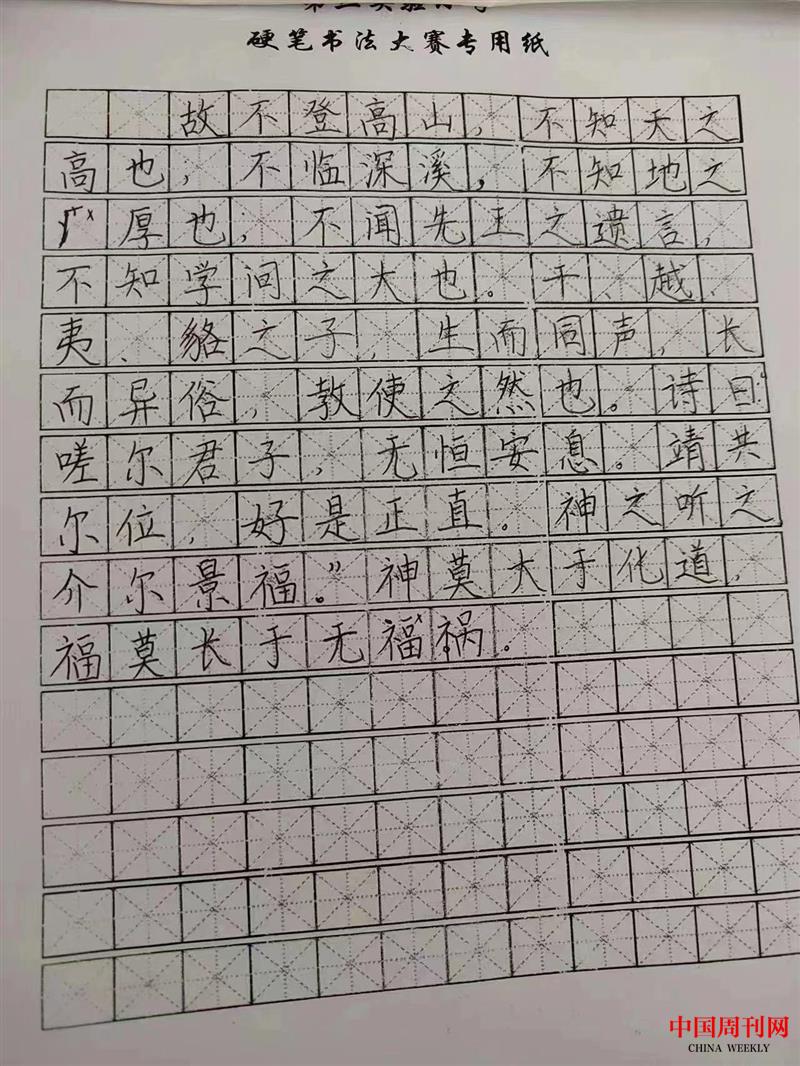 硬笔书法大赛专用纸
故不登高山，不知天之
高也，不临深溪，不知地之
厚也，不闻先王之遗言，
不知学问之大也。干、越、
夷、貉之子，生而同声，长
而异俗，教使之然也。诗曰“
嗟尔君子，无恒安息。靖共
尔位，好是正直。神之听之
介尔景福。”神莫大于化道，
福莫长于无福祸。
中国周刊网
CHINA WEEKLY